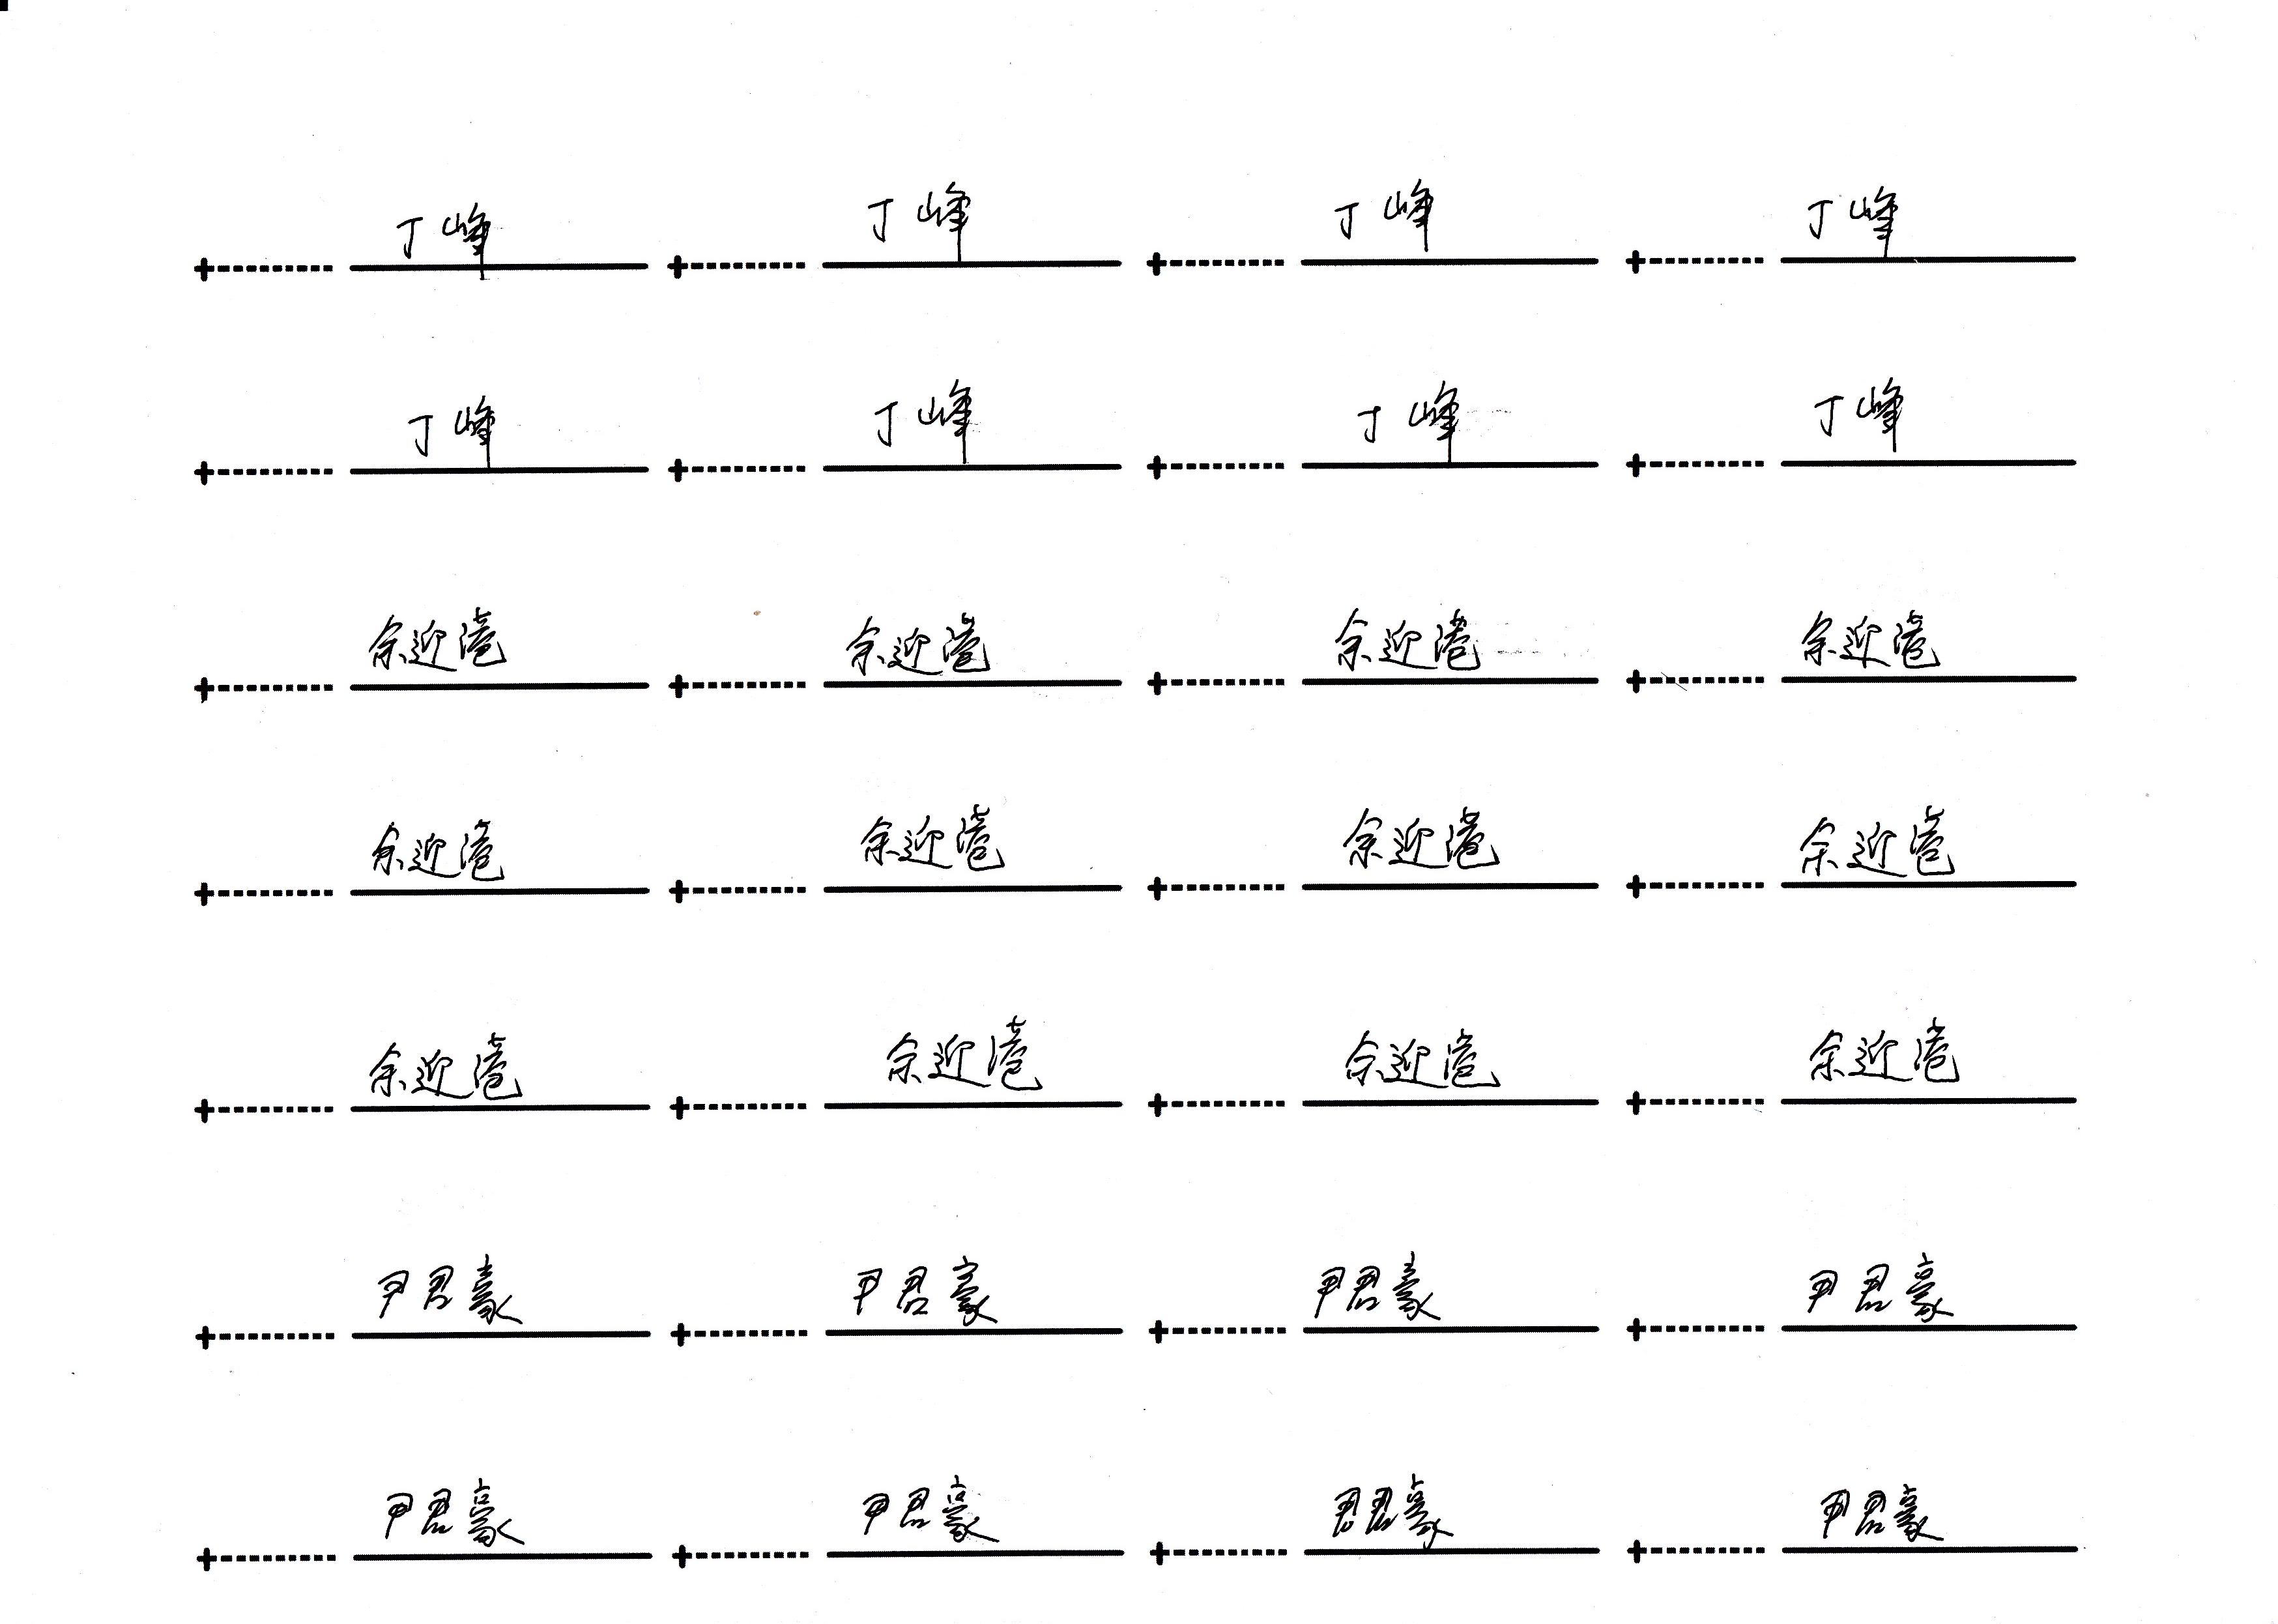 丁峰 丁峰 丁峰 丁峰
丁峰 丁峰 丁峰 丁峰
余迎港 余迎港 余迎港 余迎港
余迎港 余迎港 余迎港 余迎港
余迎港 余迎港 余迎港 余迎港
尹君豪 尹君豪 尹君豪 尹君豪
尹君豪 尹君豪 君君豪 尹君豪